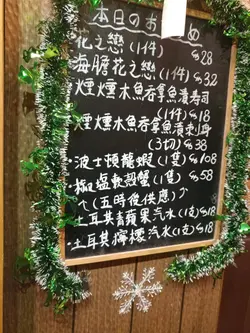 本日のおすすめ
花之戀(1件) $28
海膽花之戀(1件) $32
煙燻木魚吞拿魚漬寿司
(1件) $18
煙燻木魚吞拿魚漬刺身
(3切) $38
·波士頓龍蝦(1隻) $108
·椒塩軟殼蟹(1隻) $58
↑(五時後供應)↑
·土耳其青蘋果汽水(1支) $18
·土耳其檸檬汽水(1支) $18